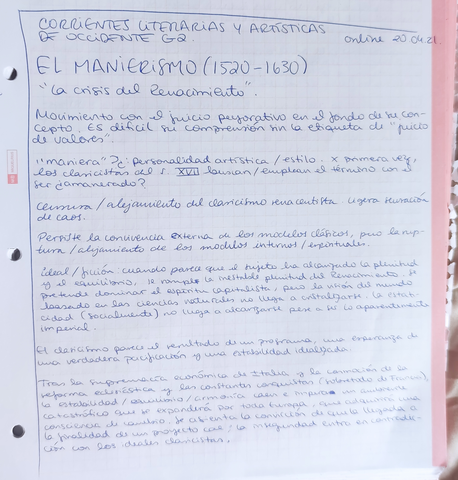 CORRIENTES LITERARIAS Y ARTÍSTICAS
DE OCCIDENTE G2. online 20.04.21.
EL MANIERISMO (1520-1630)
"La crisis del Renacimiento".
Movimiento con el juicio peyorativo en el fondo de su con-
cepto. Es difícil su comprensión sin la etiqueta de "juicio
de valores".
"maniera"? personalidad artística / estilo. x primera vez,
los clasicistas del s. XVII buscan / emplean el término con el
ser ¿amanerado?
censura / alejamiento del clasicismo renacentista. ligera sensación
de caos.
Persiste la convivencia externa de los modelos clásicos, pero la rup-
tura / alejamiento de los modelos internos / espirituales.
ideal / ficción: cuando parece que el sujeto ha alcanzado la plenitud
y el equilibrio, se rompe la inestable plenitud del Renacimiento. Se
pretende dominar el espíritu capitalista, pero la visión del mundo
basado en las ciencias naturales no llega a cristalizarse. la estabi-
cidad (socialmente) no llega a alcanzarse pese a su aparentemente
imperial.
El clasicismo parece el resultado de un programa, una esperanza de
una verdadera pacificación y una estabilidad idealizada.
Tras la supremacía económica de Italia y la conmoción de la
reforma eclesiástica y las constantes conquistas
la estabilidad / equilibrio / armonía caen e impera un ambiente
catastrófico que se expandirá por toda Europa, que adquirirá una
consciencia de cambio. se asienta la convicción de que la llegada a
la finalidad de un proyecto cae: la inseguridad entra en contradic-
ción con los ideales clasicistas.